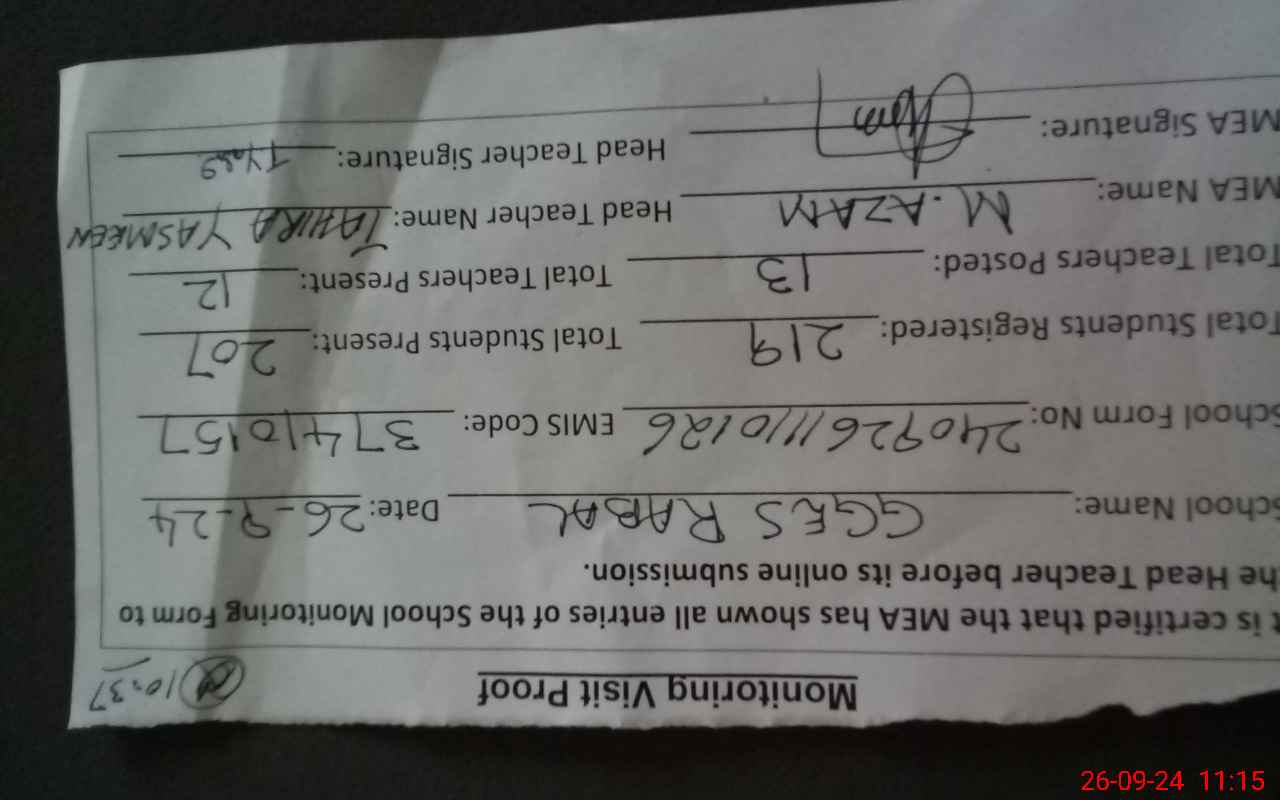 Monitoring Visit Proof @ 10:37
t is certified that the MEA has shown all entries of the School Monitoring Form to
he Head Teacher before its online submission.
School Name: GGES RABAL Date: 26-9-24
School Form No: 240926111110126 EMIS Code: 37410157
Total Students Registered: 219 Total Students Present: 207
Total Teachers Posted: 13 Total Teachers Present: 12
MEA Name: M. AZAM Head Teacher Name: TAHIRA YASMEEN
MEA Signature: Head Teacher Signature:
26-09-24 11:15